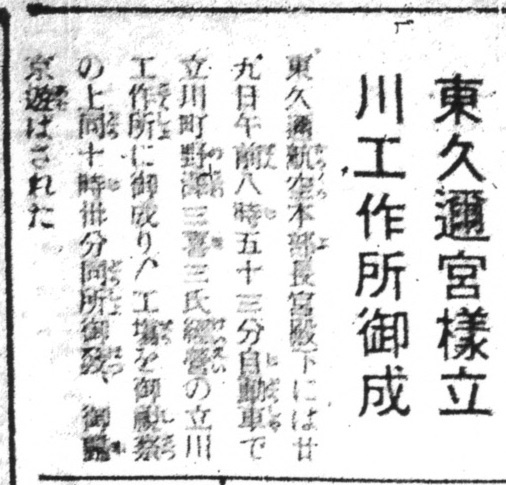 東久邇宮樣立
川工作所御成
東久邇航空本部長宮殿下には廿
九日午前八時五十三分自動車で
立川町野澤三喜三氏經營の立川
工作所に御成り、工場を御視察
の上同十時卅分同所御發、御歸
京遊ばされた